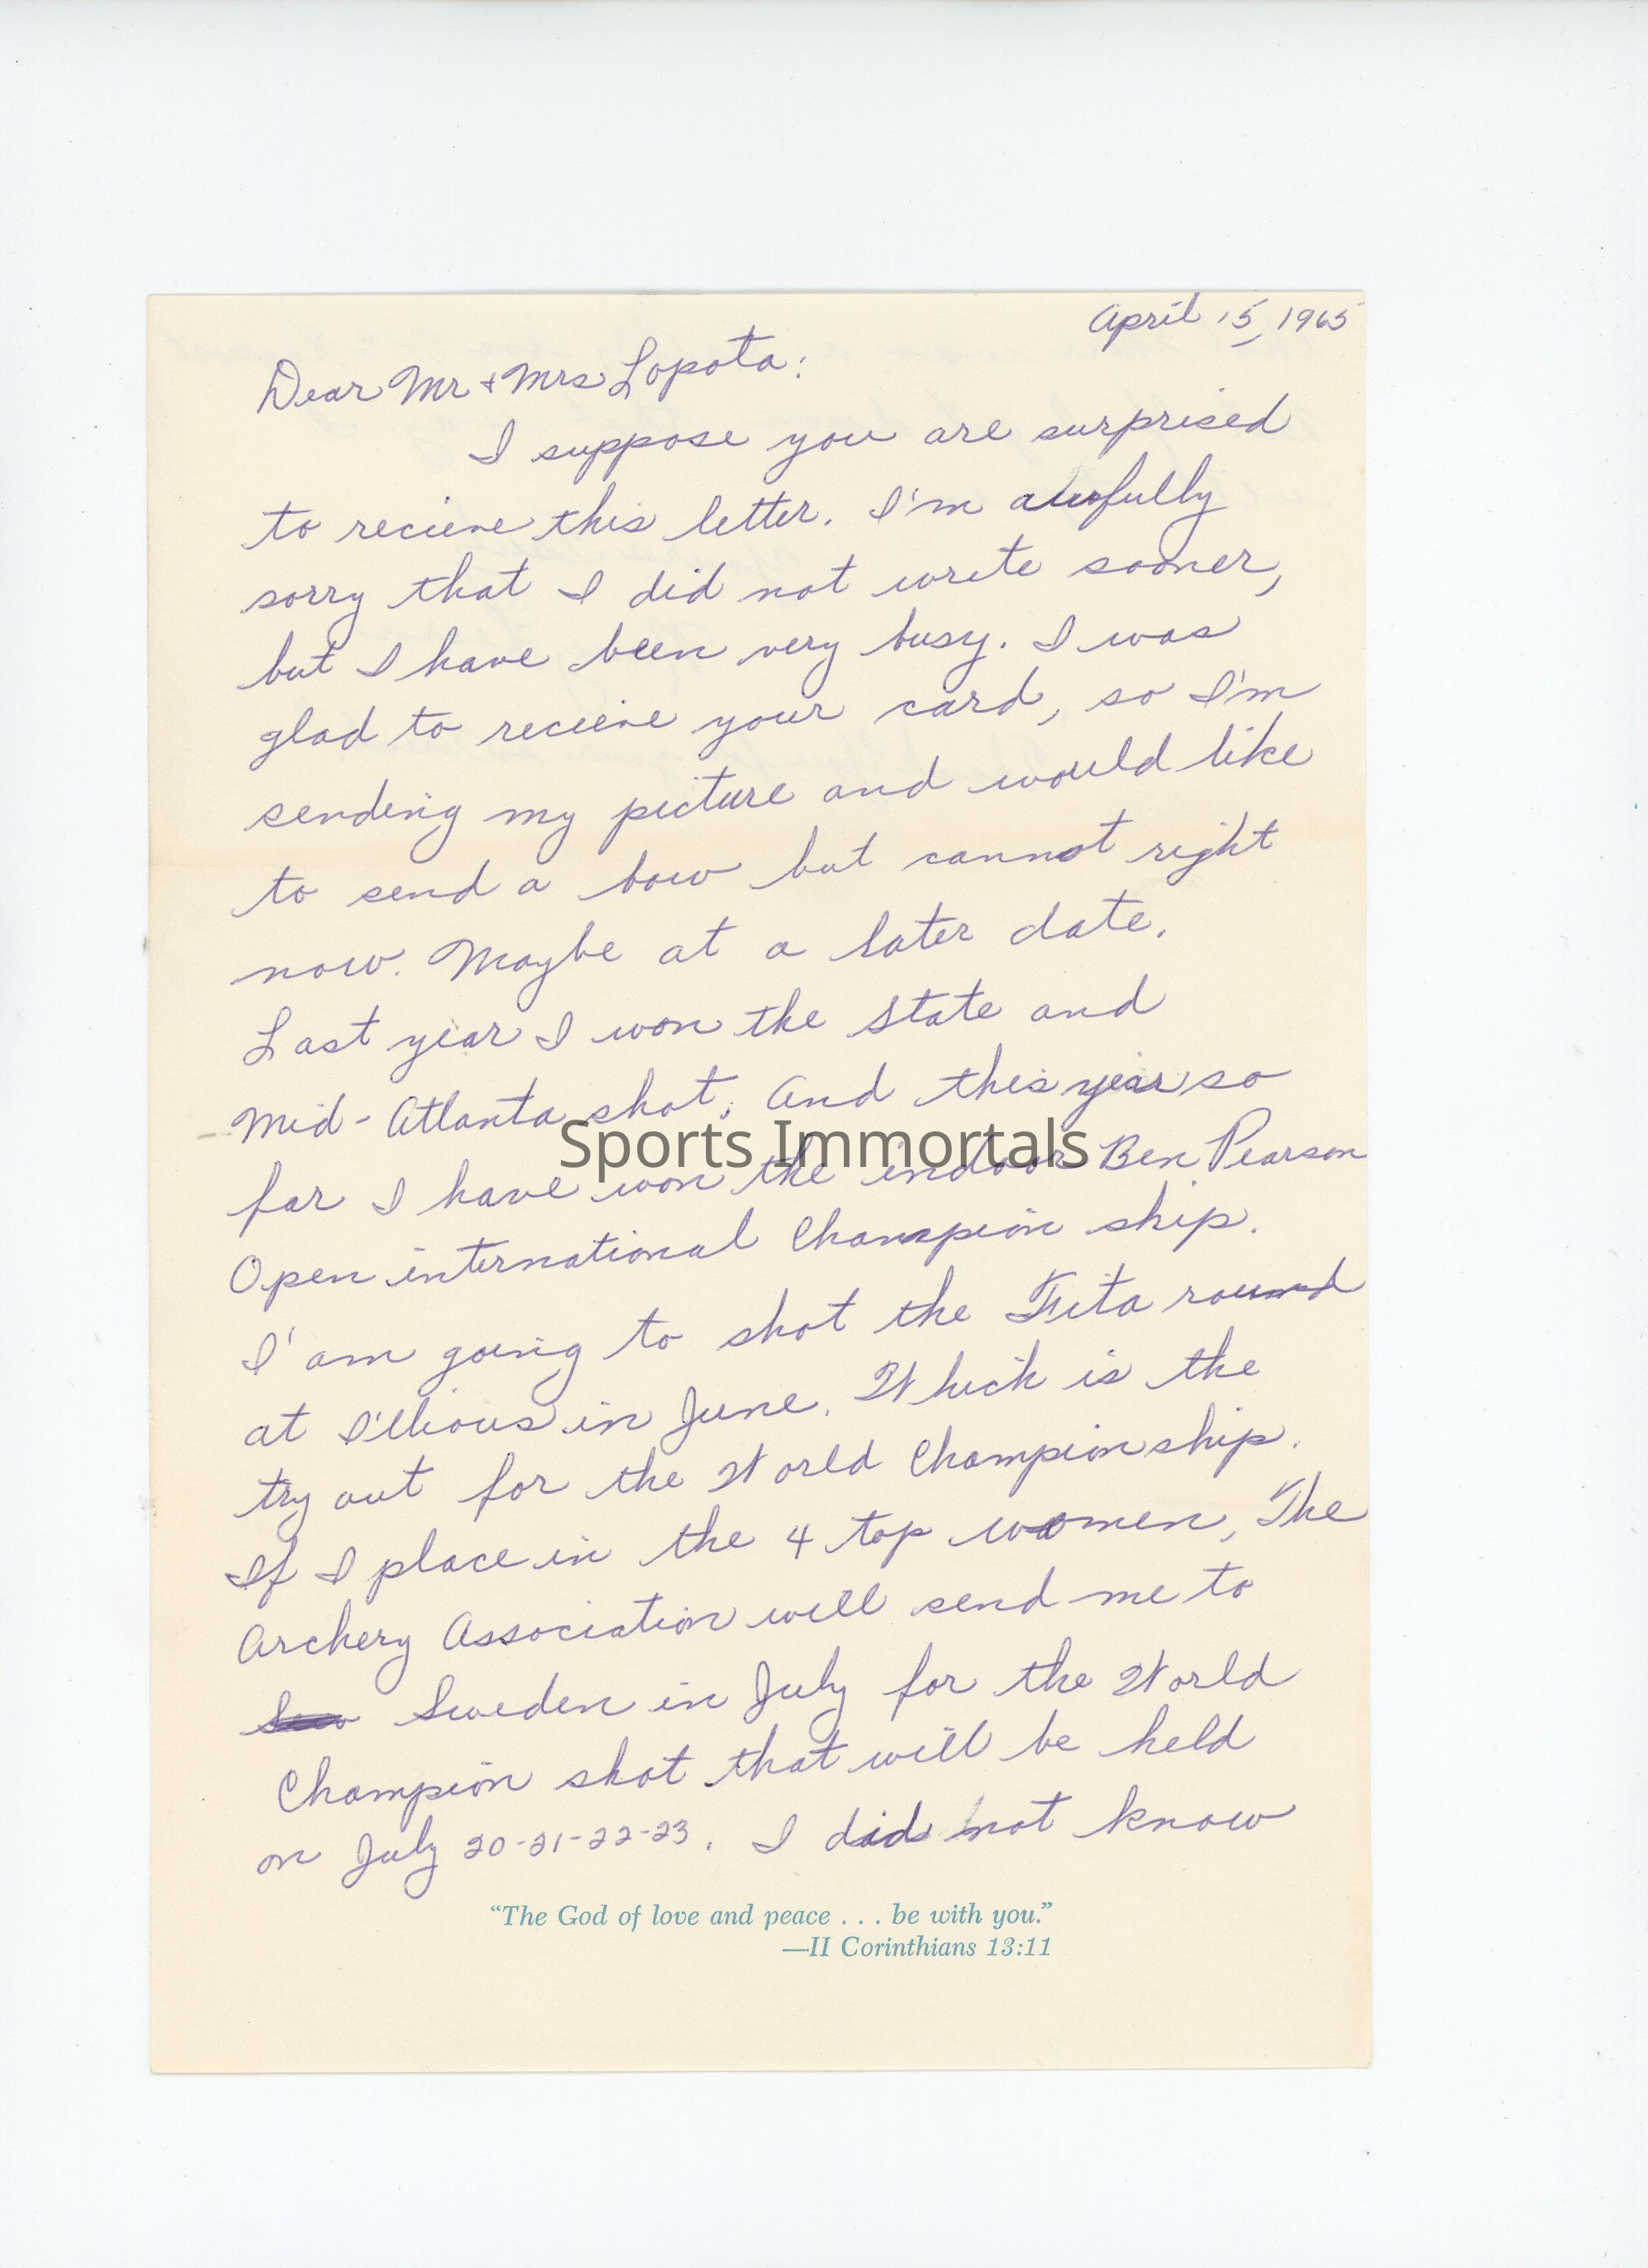 April 15, 1965
Dear Mr & Mrs Lopota:
I suppose you are surprised
to recieve this letter. I'm awfully
sorry that I did not write sooner,
but I have been very busy. I was
glad to recieve your card, so I'm
sending my picture and would like
to send a bow but cannot right
now. Maybe at a later date.
Last year I won the State and
Mid-Atlanta shot. And this year so
Sports Immortals
far I have won the indoor Ben Pearson
Open international Champion ship.
I'am going to shot the Fita round
at I'llious in June. Which is the
try out for the World Championship.
If I place in the 4 top women, The
Archery Association will send me to
Sweden in July for the World
Champion shot that will be held
on July 20-21-22-23. I did not know
“The God of love and peace . . . be with you.”
—II Corinthians 13:11